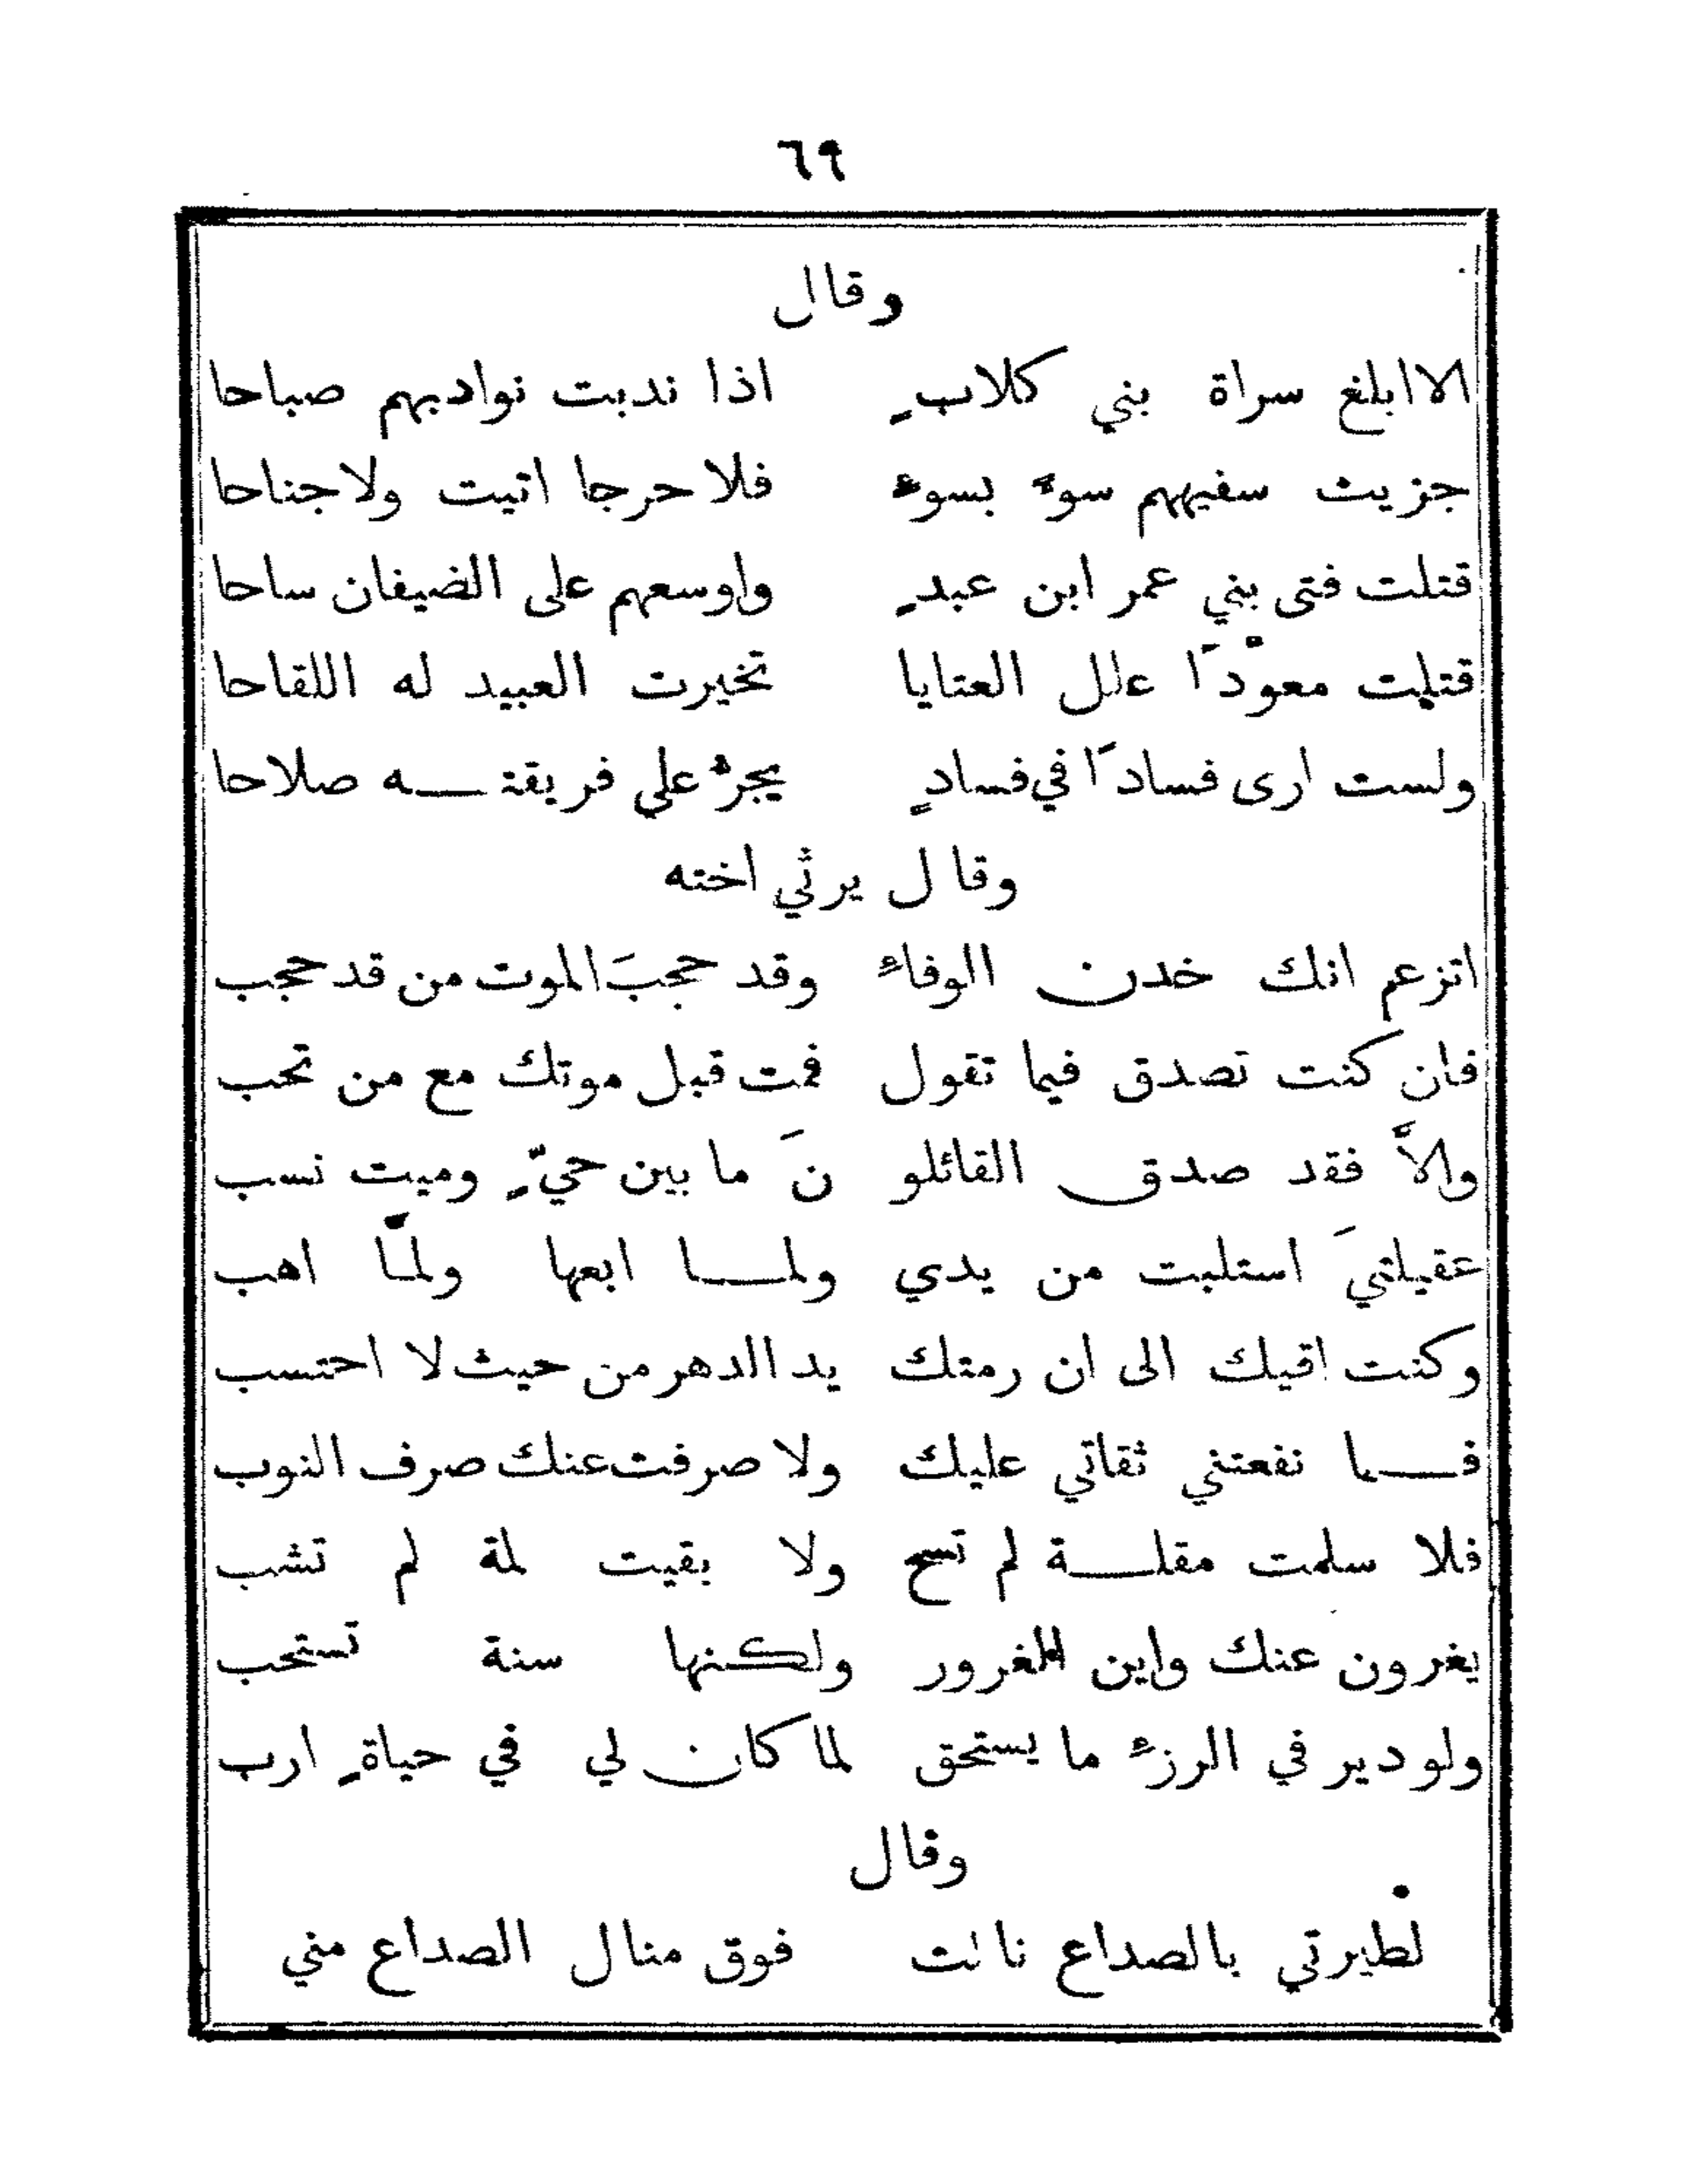 ٦٩
وقال
الا ابلغ سراة بني كلابٍ اذا ندبت نواديهم صباحا
جزيت سفيههم سوءً بسوءٍ فلا حرجا اتيت ولا جناحا
قتلت فتى بني عمر ابن عبدٍ واوسعهم على الضيفان ساحا
قتلت معوّدًا علل العتايا تخيرت العبيد له اللقاحا
ولست ارى فسادًا في فسادٍ يجرّ على فريقتـــه صلاحا
وقال يرثي اخته
اتزعم انك خدن الوفاءِ وقد حجبَ الموت من قد حجب
فان كنت تصدق فيما تقول فمت قبل موتك مع من تحب
والاَّ فقد صدق القائلو نَ ما بين حيٍّ وميت نسب
عقيلتيَ استلبت من يدي ولمـــا ابعها ولمّا اهب
وكنت اقيك الى ان رمتك يد الدهر من حيث لا احتسب
فـــما نفعتني ثقاتي عليك ولا صرفت عنك صرف النوب
فلا سلمت مقلـــة لم تسح ولا بقيت لمة لم تشب
يغرون عنك واين المغرور ولكنها سنة تستحب
ولو دير في الرزءِ ما يستحق لما كان لي في حياةٍ ارب
وقال
لطيرتي بالصداع نالت فوق منال الصداع مني